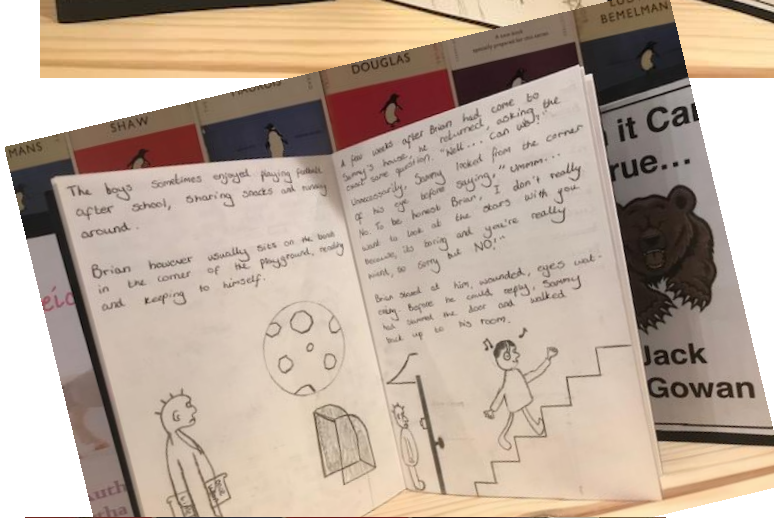 BEMELMAN
A new book
specially prepared for this series
DOUGLAS
SHAW
MANS
The boys sometimes enjoyed playing football
after school, sharing snacks and running
around.
Brian however usually sits on the
in the corner of the playground, reading
and keeping to himself.
A few weeks after Brian had come to
Sammy's house, he returned, asking the
exact same question. "Well... Can we?"
Unnecessarily, Sammy looked from the corner
of his eye before saying, "Ummm...
No. To be honest Brian, I don't really
want to look at the stars with you
because, its boring and you're really
weird, so sorry but NO!"
Brian stared at him, wounded, eyes wat-
ering. Before he could reply, Sammy
had slammed the door and walked
back up to his room.
it Ca
rue...
Jack
Gowan